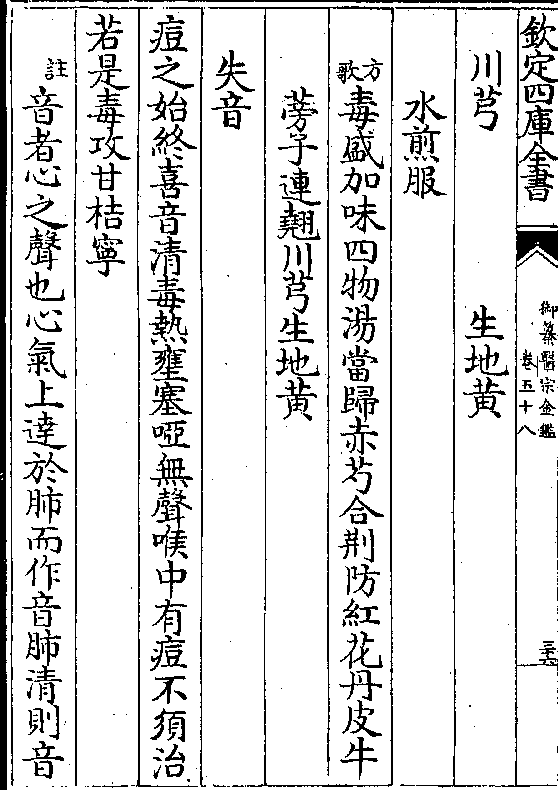 欽定四庫全書
御纂醫宗金鑑
卷五十八
三十六
川芎　生地黃
水煎服
方歌　毒盛加味四物湯當歸赤芍合荆防紅花丹皮牛
蒡子連翹川芎生地黃
失音
痘之始終喜音清毒熱壅塞啞無聲喉中有痘不須治
若是毒攻甘桔寧
註　音者心之聲也心氣上達於肺而作音肺清則音